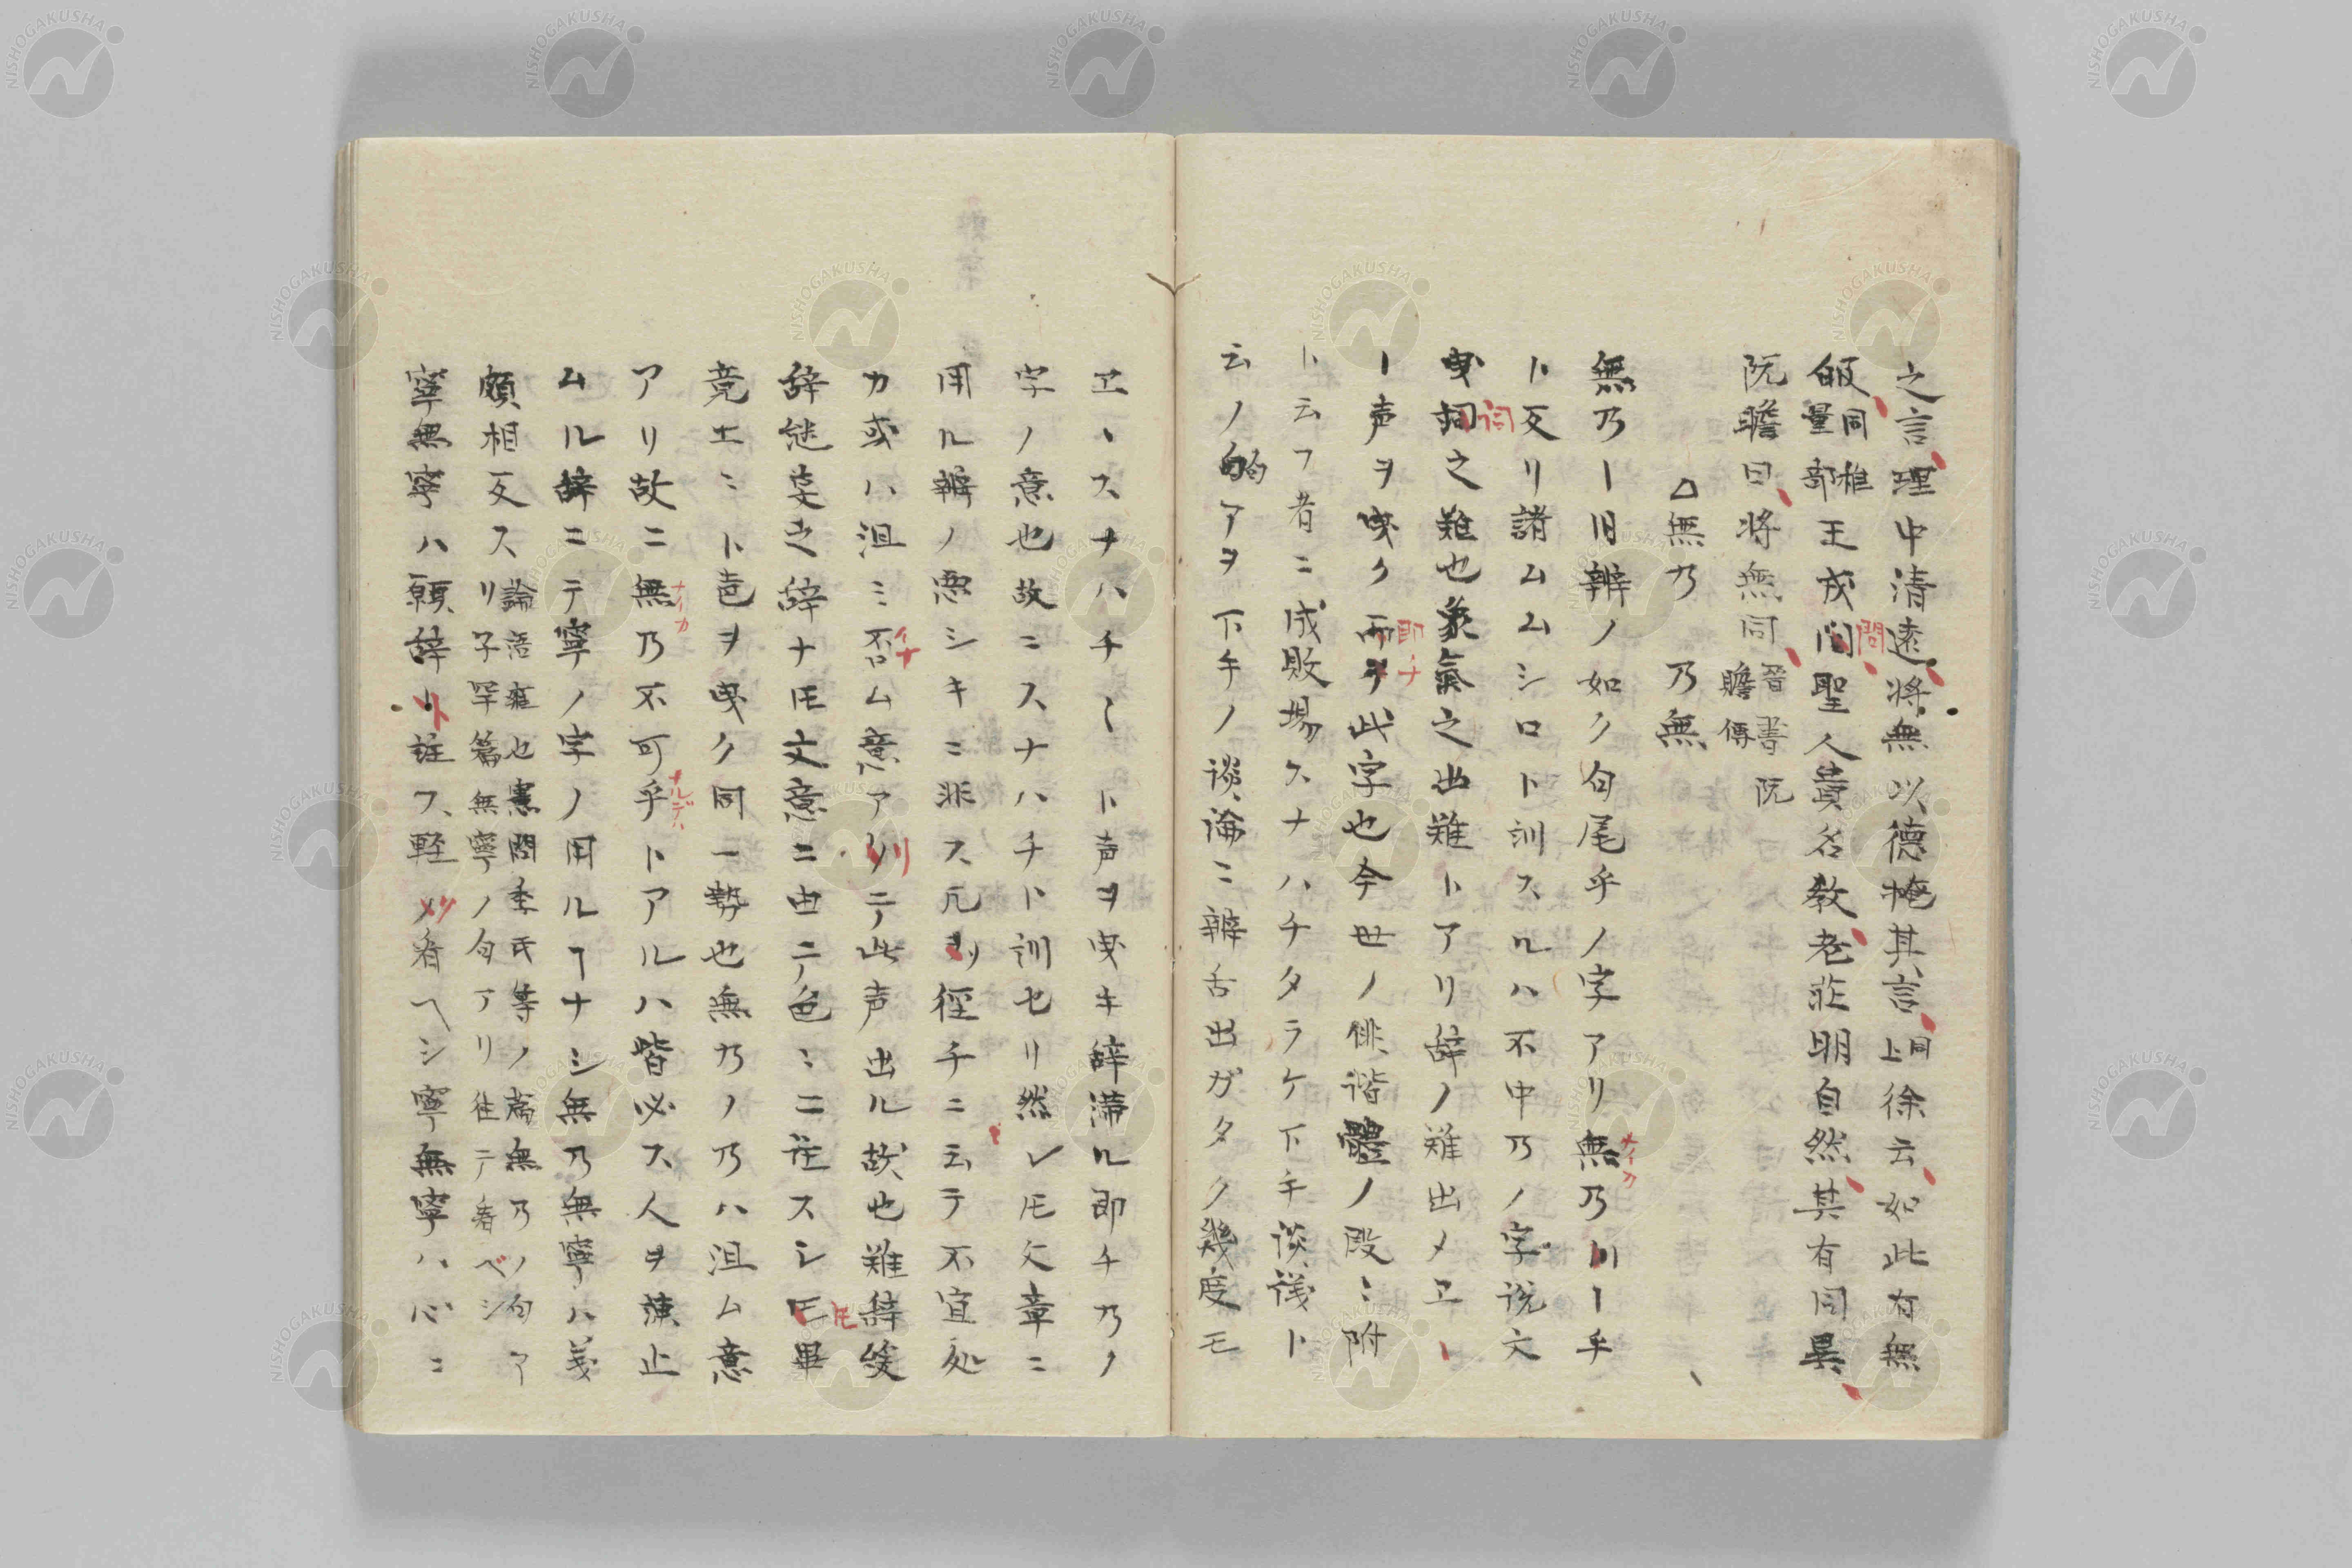 之言理中清遠將無以德掩其言同上徐云如此有無
皈同量椎部王戎問聖人貴名教老莊明自然其有同異
阮瞻曰將無同晉書阮瞻傳
△無乃 乃無
無乃ー旧辨ノ如ク句尾乎ノ字アリ無乃川ー乎
ト反リ諸ムムシロト訓スルハ不中乃ノ字説文
曳詞之難也象氣之出難トアリ辞ノ難出メヱ
ー声ヲ曳ク即チ此字也今世ノ俳諧體ノ段ニ附
ト云フ者ニ成敗場スナハチタラケ下手談議ト
云ノ的アヲ下手ノ談論ニ辨舌出ガタク幾度モ
ヱヽスナハチ〱ト声ヲ曳キ辞滞ル即チ乃ノ
字ノ意也故ニスナハチト訓セリ然レ𪜈文章ニ
用ル辨ノ悪シキニ非ス凡ソ徑チニ云テ不宜処
カ或ハ沮ミ否ム意アリテ此声出ル故也難辞笑
辞継妄之辞ナ𪜈文意ニ由テ色ニニ註スレ𪜈畢
竟エヽト声ヲ曳ク同一勢也無乃ノ乃ハ沮ム意
アリ故ニ無乃不可乎トアルハ皆必ス人ヲ諫止
ムル辞ニテ寧ノ字ノ用ルヿナシ無乃無寧ハ義
頗相反スリ論語雍也憲問季氏等ノ篇無乃ノ句ア
子罕篇無寧ノ句アリ往テ看ベシ
寧無寧ハ願辞ト註ス軽ク看ヘシ寧無寧ハ心ニ